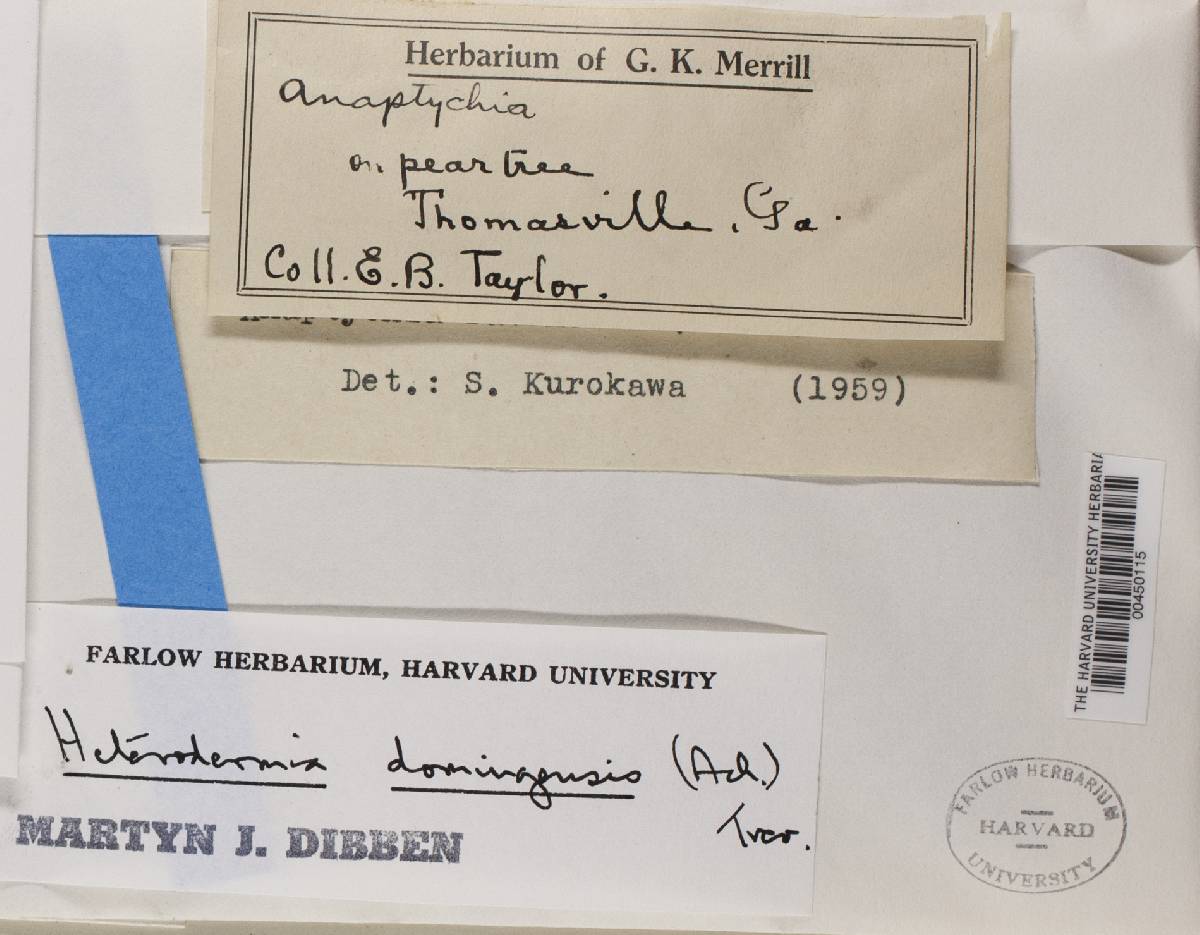 Herbarium of G. K. Merrill
Anaptychia
on pear tree
Thomasville, Ga.
Coll. E. B. Taylor.
Det.: S. Kurokawa (1959)
THE HARVARD UNIVERSITY HERBARIA
00450115
FARLOW HERBARIUM, HARVARD UNIVERSITY
Heterodermia domingensis (Ach.)
Trev.
MARTYN J. DIBBEN
FARLOW HERBARIUM
HARVARD
UNIVERSITY